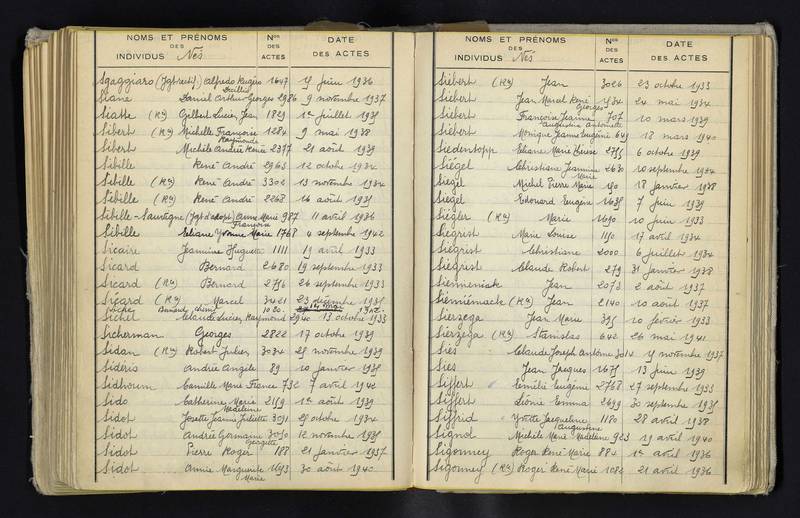 NOMS ET PRÉNOMS DES INDIVIDUS Nés
Nos DES ACTES
DATE DES ACTES
Sgaggiaro Alfredo 1647 15 juin 1936
Siane Daniel Arthur Georges 2986 9 novembre 1937
Siatte (Rn) Gilbert Lucien Jean 1829 1er juillet 1935
Sibert (Rn) Michelle Françoise 1284 9 mai 1938
Raymonde
Sibert Michèle Andrée Renée 2377 21 août 1939
Sibille René André 2963 12 octobre 1934
Sibille (Rn) René André 3302 13 novembre 1934
Sibille (Rn) René André 2268 16 août 1935
Sibille-Sauvetgne (Jgt d'adopt.) Anne Marie 987 11 avril 1936
Françoise
Sibille Eliane Yvonne Marie 1768 4 septembre 1942
Sicaire Jeannine Huguette 1111 19 avril 1933
Sicard Bernard 2680 19 septembre 1933
Sicard (Rn) Bernard 2756 26 septembre 1933
Sicard (Rn) Marcel 3421 23 décembre 1935
Sichel Claude Lucien Raymond 2940 13 octobre 1933
Sicherman Georges 2822 17 octobre 1939
Sidan (Rn) Robert Julien 3034 28 novembre 1939
Sidéris Andrée Angèle 89 10 janvier 1935
Sidhoum Camille Marie France 732 7 avril 1942
Sido Catherine Marie 2159 1er août 1939
Madeleine
Sidot Josette Jeanne Juliette 3091 25 octobre 1934
Sidot Andrée Germaine 3090 12 novembre 1935
Georgette
Sidot Pierre Roger 188 21 janvier 1937
Sidot Annie Marguerite 1693 30 août 1940
Marie
NOMS ET PRÉNOMS DES INDIVIDUS Nés
Nos DES ACTES
DATE DES ACTES
Siebert (Rn) Jean 3026 23 octobre 1933
Siebert Jean Marcel René 1534 24 mai 1934
Georges
Siebert Françoise Jeanne 707 10 mars 1939
Augustine Antoinette
Siebert Monique Jeanne Eugénie 649 18 mars 1940
Siedentopp Eliane Marie Thérèse 2755 6 octobre 1939
Siegel Christiane Jeannine 2630 10 septembre 1934
Marie
Siegel Michel Pierre Marie 190 18 janvier 1938
Siegel Edouard Eugène 1635 7 juin 1939
Siegler (Rn) Marie 1690 10 juin 1933
Siegrist Marie Louise 1150 17 avril 1934
Siegrist Christiane 2000 6 juillet 1934
Siegrist Claude Robert 279 31 janvier 1938
Siemieniak Jean 2073 2 août 1937
Siemiémack (Rn) Jean 2140 10 août 1937
Sierzega Jean Marie 395 10 février 1933
Sierzega (Rn) Stanislas 642 26 mai 1941
Siès Claude Joseph Antoine 3014 15 novembre 1937
Siès Jean Jacques 1675 13 juin 1939
Siffert Emilie Eugénie 2768 27 septembre 1933
Siffert Léonie Emma 2699 30 septembre 1935
Siffrid Yvette Jacqueline 1180 28 avril 1938
Augustine
Signol Michèle Marie Madeleine 923 19 avril 1940
Sigonney Roger René Marie 884 1er avril 1936
Sigonney (Rn) Roger René Marie 1082 21 avril 1936